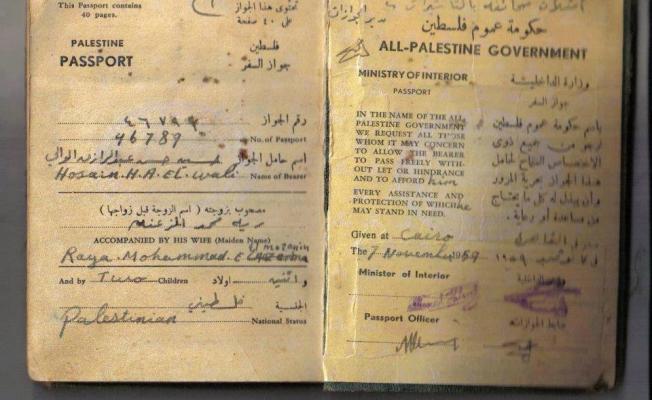 This Passport contains
40 pages.
تحتوى هذا الجواز
على ٤٠ صفحة
PALESTINE
PASSPORT
فلسطين
جواز السفر
رقم الجواز
٤٦٧٨٩
46789
No. of Passport
اسم حامل الجواز
Hosain. H. A. EL. wali
Name of Bearer
مصحوب بزوجته ( اسم الزوجة قبل زواجها )
محمد
ACCOMPANIED BY HIS WIFE (Maiden Name)
Raya. Mohammad. El
And by Two Children
اولاد
الجنسية
فلسطيني
Palestinian
National Status
حكومة عموم فلسطين
ALL-PALESTINE GOVERNMENT
MINISTRY OF INTERIOR
وزارة الداخلية
PASSPORT
جواز السفر
IN THE NAME OF THE ALL-
PALESTINE GOVERNMENT
WE REQUEST ALL THOSE
WHOM IT MAY CONCERN
TO ALLOW THE BEARER
TO PASS FREELY WITH-
OUT LET OR HINDRANCE
AND TO AFFORD him
EVERY ASSISTANCE AND
PROTECTION OF WHICH he
MAY STAND IN NEED.
باسم حكومة عموم فلسطين
ارجو من جميع ذوى
الاختصاص السماح لحامل
هذا الجواز بحرية المرور
وأن يبذل له كل ما يحتاج
من مساعدة أو رعاية.
Given at Cairo
The 7 November 1959
Minister of Interior
Passport Officer
ضابط الجوازات